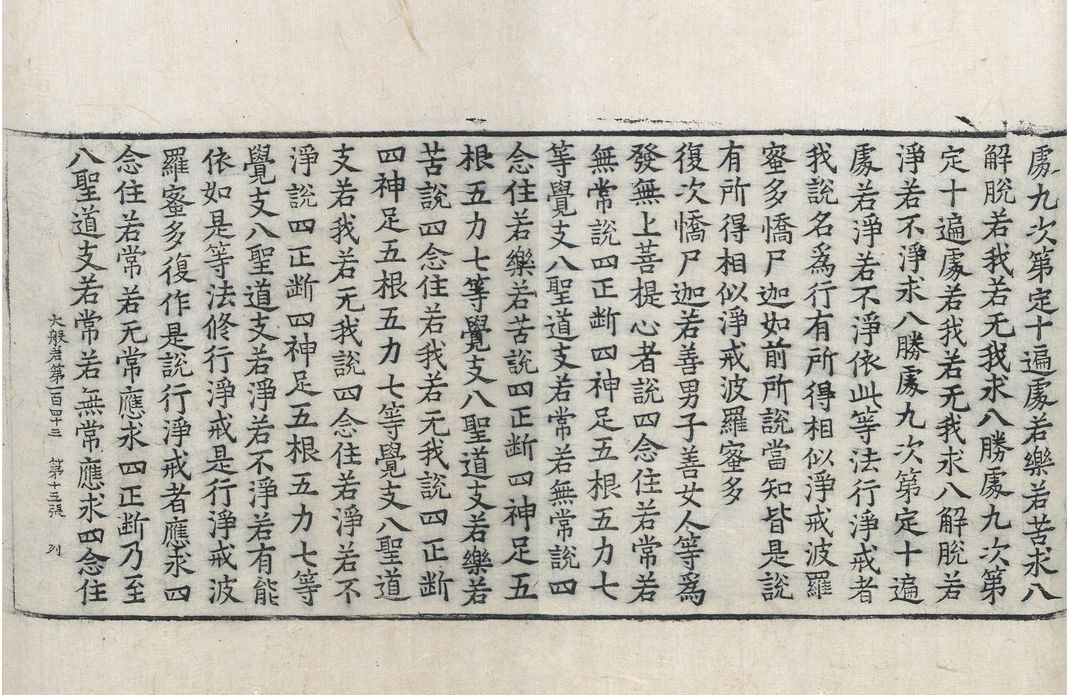 處九次第定十遍處若樂若苦求八
解脫若我若无我求八勝處九次第
定十遍處若我若无我求八解脫若
淨若不淨求八勝處九次第定十遍
處若淨若不淨依此等法行淨戒者
我說名爲行有所得相似淨戒波羅
蜜多憍尸迦如前所說當知皆是說
有所得相似淨戒波羅蜜多
復次憍尸迦若善男子善女人等爲
發無上菩提心者說四念住若常若
無常說四正断四神足五根五力七
等覺支八聖道支若常若無常說四
念住若樂若苦說四正断四神足五
根五力七等覺支八聖道支若樂若
苦說四念住若我若无我說四正断
四神足五根五力七等覺支八聖道
支若我若无我說四念住若淨若不
淨說四正断四神足五根五力七等
覺支八聖道支若淨若不淨若有能
依如是等法修行淨戒是行淨戒波
羅蜜多復作是說行淨戒者應求四
念住若常若无常應求四正断乃至
八聖道支若常若無常應求四念住
大般若第一百四十三 第十五張 列